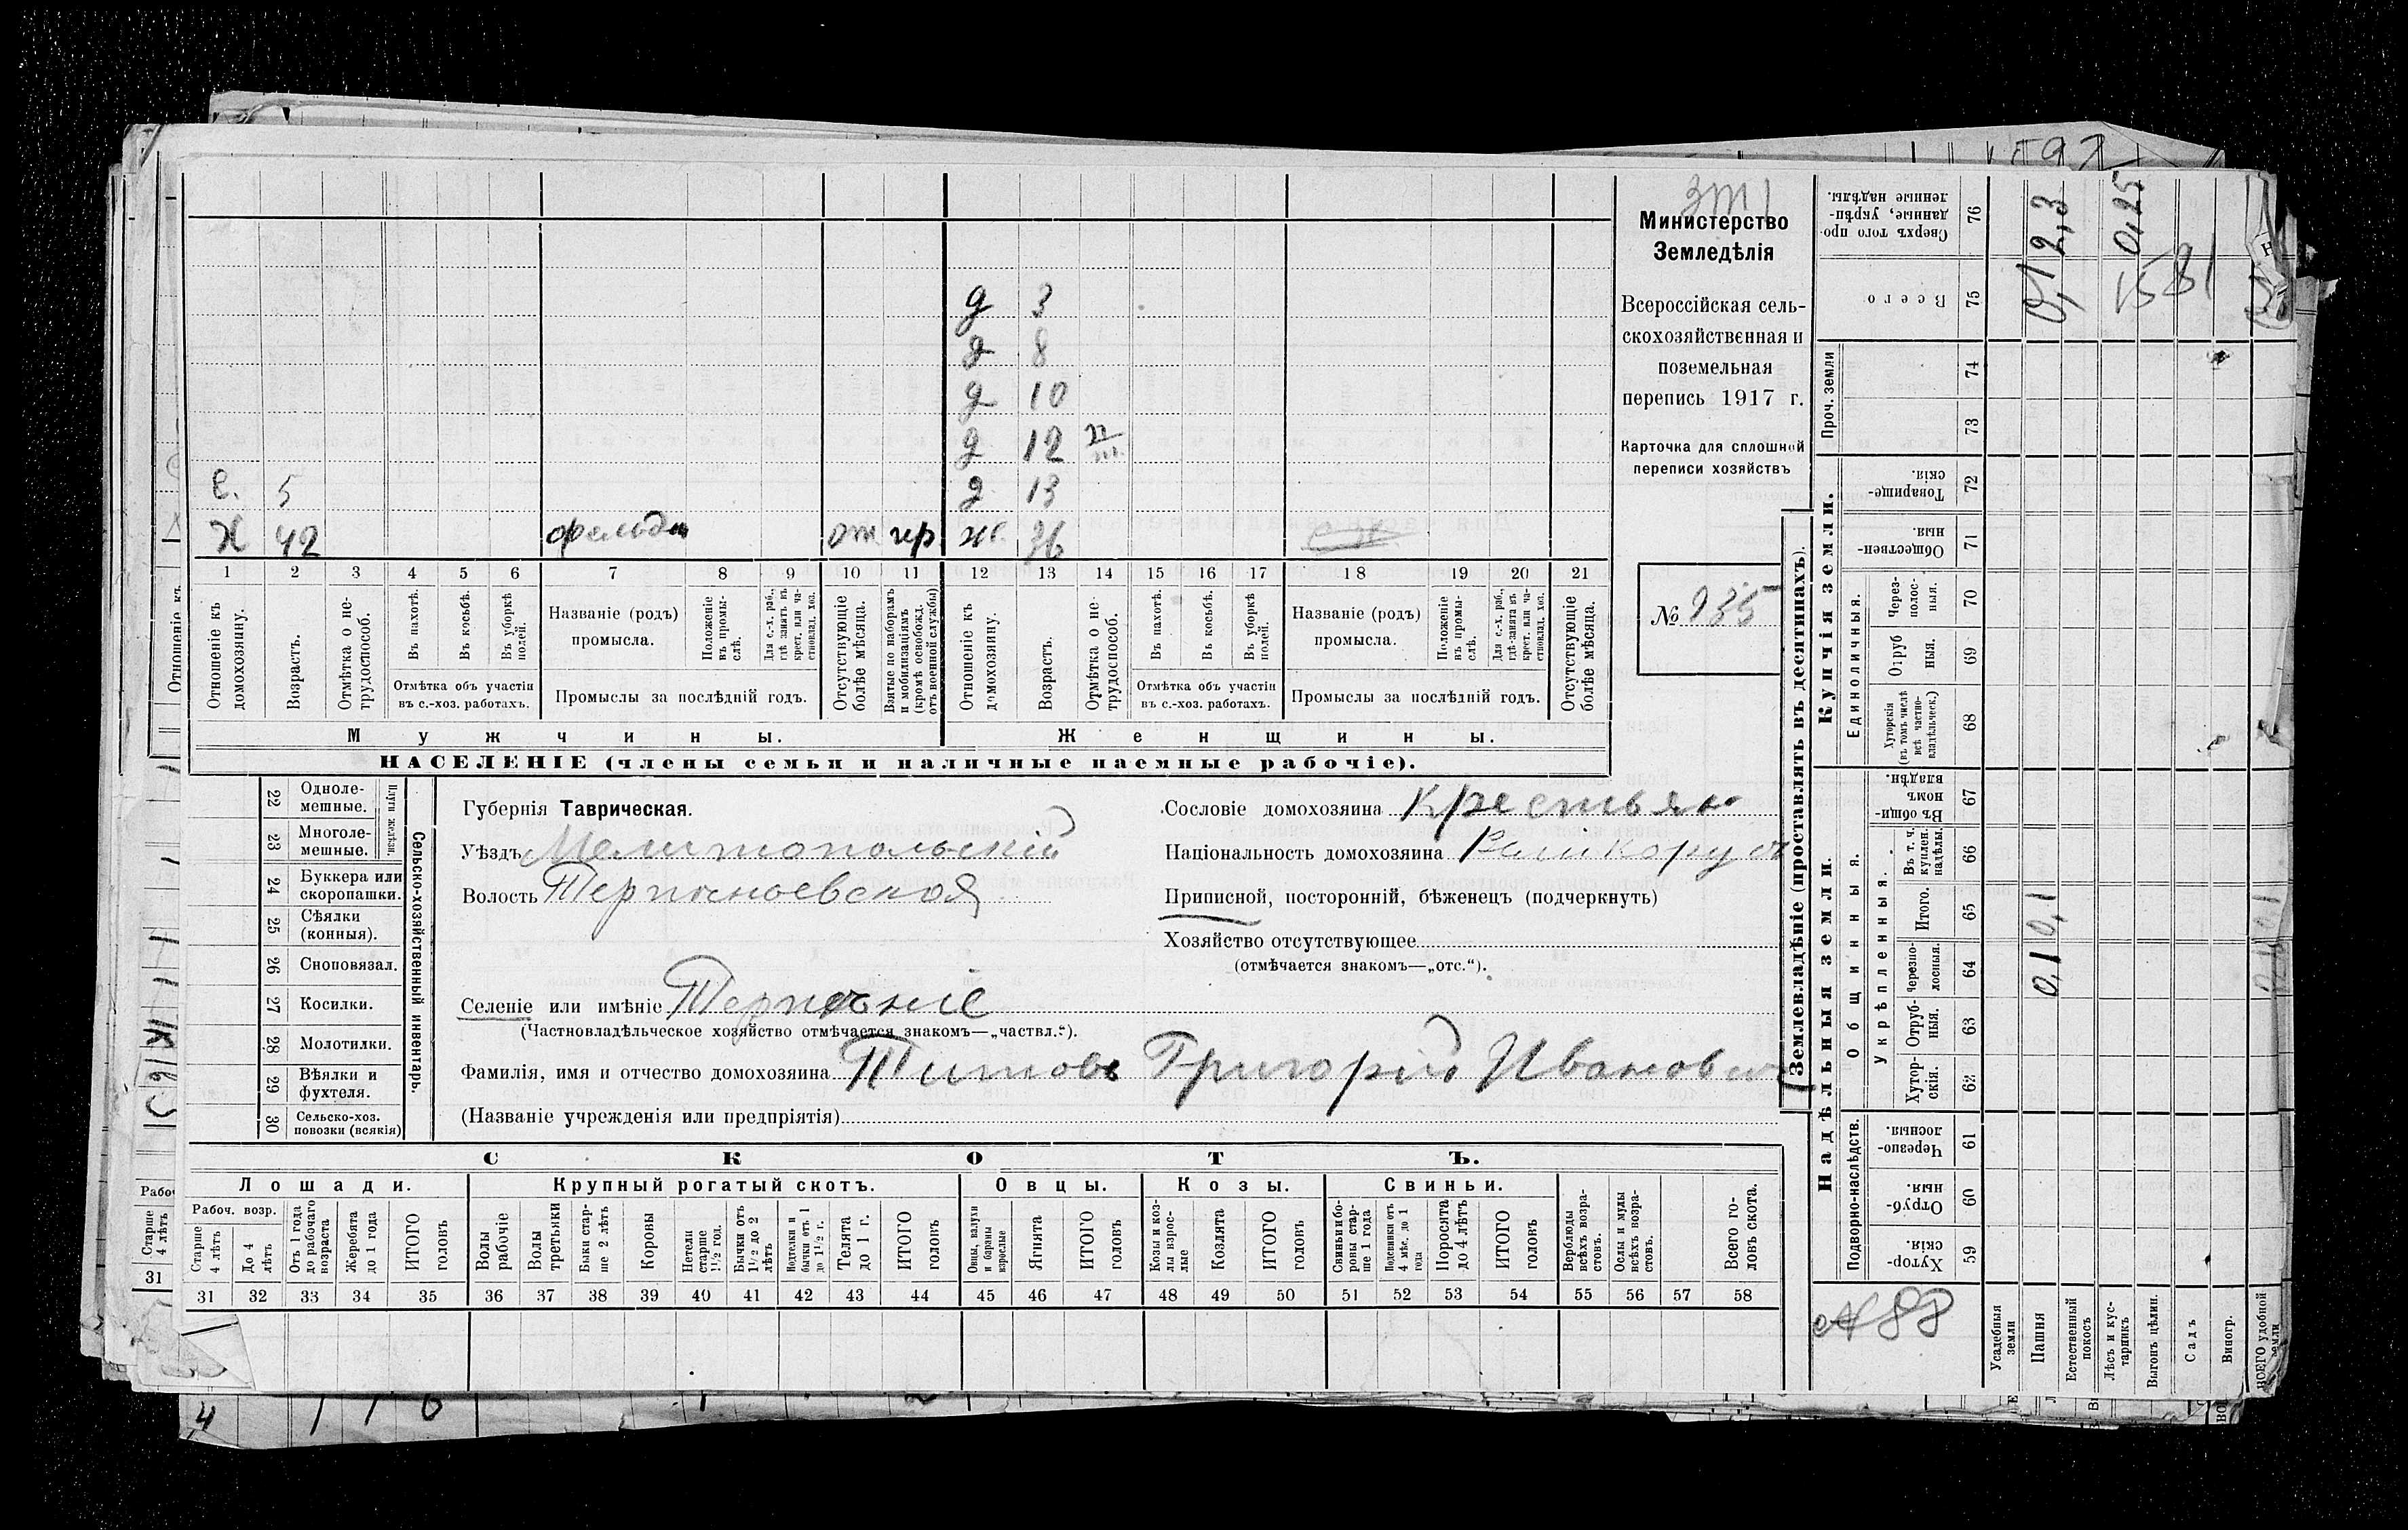 Министерство
Земледѣлія
Всероссійская сель-
скохозяйственная и
поземельная
перепись 1917 г.
Карточка для сплошной
переписи хозяйствъ
№ 235
д 3
д 8
д 10
д 12
с. 5 д 13
Х 42 фельдш отс. ж. 36
1 2 3 4 5 6 7 8 9 10 11 12 13 14 15 16 17 18 19 20 21
Отношеніе къ домохозяину.
Возрастъ.
Отмѣтка о не-трудоспособ.
Въ пахотѣ.
Въ косьбѣ.
Въ уборкѣ полей.
Отмѣтка объ участіи
въ с.-хоз. работахъ.
Названіе (родъ)
промысла.
Положеніе въ промы-слѣ.
Для с.-х. раб., гдѣ занятъ въ крест. или ча-стновлад. хоз.
Промыслы за послѣдній годъ.
Отсутствующіе болѣе мѣсяца.
Взятые по наборамъ и мобилизаціямъ (кромѣ освобожд. отъ военной службы)
Отношеніе къ домохозяину.
Возрастъ.
Отмѣтка о не-трудоспособ.
Въ пахотѣ.
Въ косьбѣ.
Въ уборкѣ полей.
Отмѣтка объ участіи
въ с.-хоз. работахъ.
Названіе (родъ)
промысла.
Положеніе въ промы-слѣ.
Для с.-х. раб., гдѣ занятъ въ крест. или ча-стновлад. хоз.
Промыслы за послѣдній годъ.
Отсутствующіе болѣе мѣсяца.
Мужчины. Женщины.
НАСЕЛЕНІЕ (члены семьи и наличные наемные рабочіе).
22 Одноле-мешные.
23 Многоле-мешные.
Плуги желѣзн.
24 Буккера или скоропашки.
25 Сѣялки (конныя).
26 Сноповязал.
27 Косилки.
28 Молотилки.
29 Вѣялки и фухтеля.
30 Сельско-хоз. повозки (всякія)
Сельско-хозяйственный инвентарь.
Губернія Таврическая.
Уѣздъ Мелитопольскій
Волость Терпѣньевская
Селеніе или имѣніе Терпѣніе
(Частновладѣльческое хозяйство отмѣчается знакомъ—„частвл.“).
Фамилія, имя и отчество домохозяина Титовъ Григорій Иванович
(Названіе учрежденія или предпріятія)
Сословіе домохозяина Крестьян
Національность домохозяина Великорус
Приписной, посторонній, бѣженец (подчеркнуть)
Хозяйство отсутствующее
(отмѣчается знакомъ—„отс.“).
СКОТЪ.
Лошади. Крупный рогатый скотъ. Овцы. Козы. Свиньи.
Рабоч. возр.
Старше 4 лѣтъ
До 4 лѣтъ
Отъ 1 года до рабочаго возраста
Жеребята до 1 года
ИТОГО головъ
Волы рабочіе
Волы третьяки
Быки стар-ше 2 лѣтъ
Коровы
Нетели старше 1½ год.
Бычки отъ 1½ до 2 лѣтъ
бычки отъ 1 до 1½ г.
Телята до 1 г.
ИТОГО головъ
Овцы, валухи и бараны взрослые
Ягнята
ИТОГО головъ
Козы и коз-лы взрос-лые
Козлята
ИТОГО головъ
Свиньи и бо-ровы стар-ше 1 года
Подсвинки отъ 4 мѣс. до 1 года
Поросята до 4 лѣтъ
ИТОГО головъ
Верблюды всѣхъ возра-стовъ.
Ослы и мулы всѣхъ возра-стовъ.
Всего го-ловъ скота.
31 32 33 34 35 36 37 38 39 40 41 42 43 44 45 46 47 48 49 50 51 52 53 54 55 56 57 58
Землевладѣніе (проставлять въ десятинахъ).
Надѣльныя земли. Купчія земли.
Проч. земли
Подворно-наслѣдств.
Общинныя.
Укрѣпленныя.
Единоличныя.
59 Хутор-скія.
60 Отруб-ныя.
61 Черезпо-лосныя.
62 Хутор-скія.
63 Отруб-ныя.
64 Черезпо-лосныя.
65 Итого.
66 Въ т. ч. куплен. надѣлы.
67 Въ общи-номъ владѣн.
68 Хуторскія (въ томъ числѣ всѣ частно-владѣльческ.)
69 Отруб ныя.
70 Через-полос-ныя.
71 Обществен-ныя
72 Товарище-скія.
73
74
75 Всего
76 Сверхъ того про-данные, укрѣп-ленные надѣлы.
Усадебныя земли
Пашня 0,1 0,1 0,1 2,3
Естественный покосъ
Лѣсъ и кус-тарникъ 0,25
1581
Выгонъ цѣлин.
Садъ
Виногр.
88